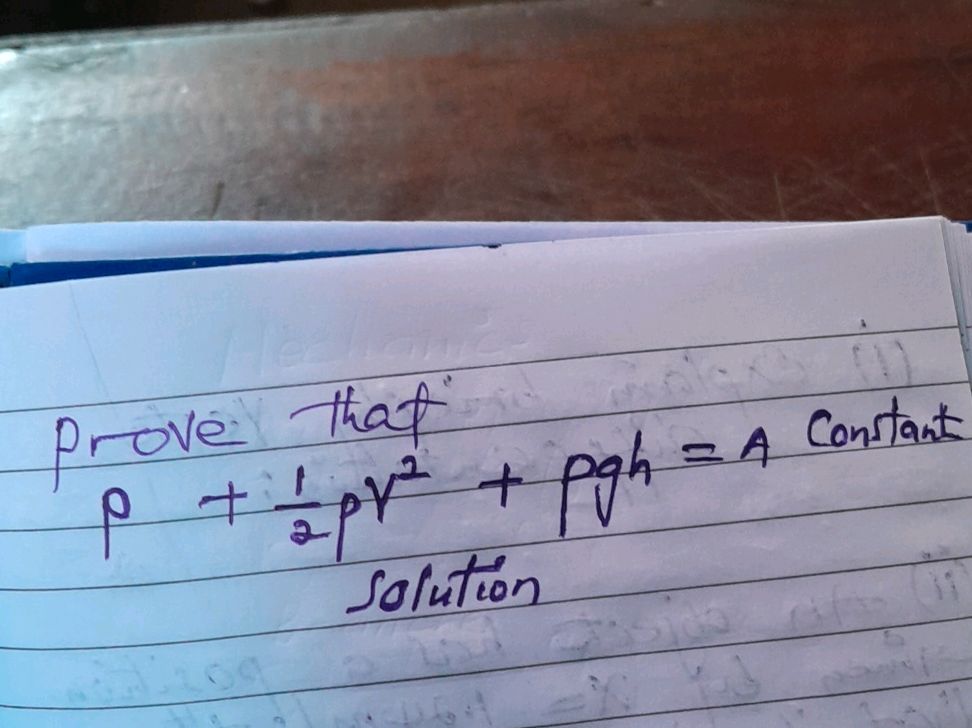 prove that
p + 1/2 pv² + pgh = A Constant
solution